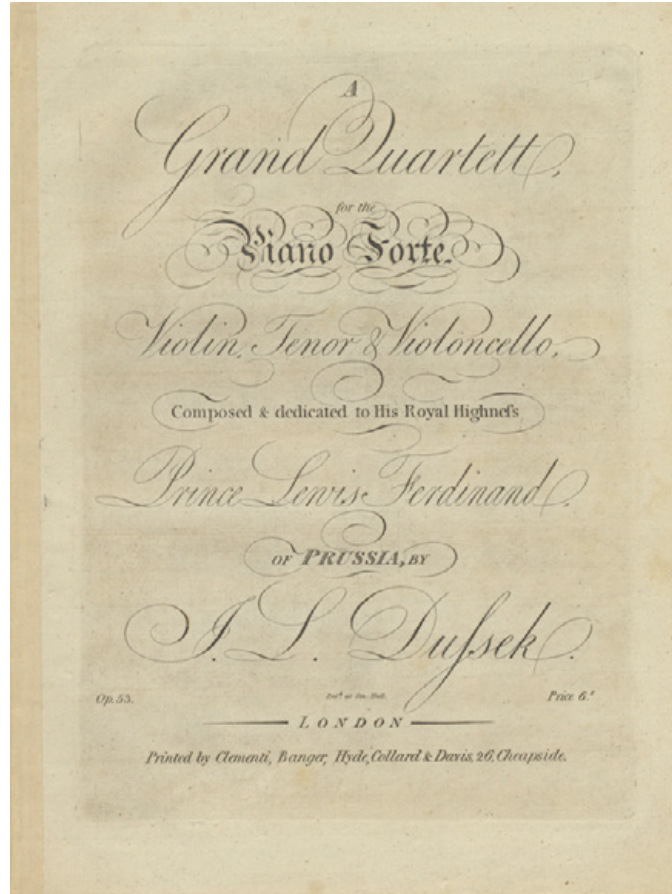 A
Grand Quartett,
for the
Piano Forte.
Violin, Tenor & Violoncello,
Composed & dedicated to His Royal Highneſs
Prince Lewis Ferdinand.
OF PRUSSIA, BY
J. L. Duſsek.
Op. 53.
Entd at Sta. Hall.
Price 6s
LONDON
Printed by Clementi, Banger, Hyde, Collard & Davis, 26, Cheapside.